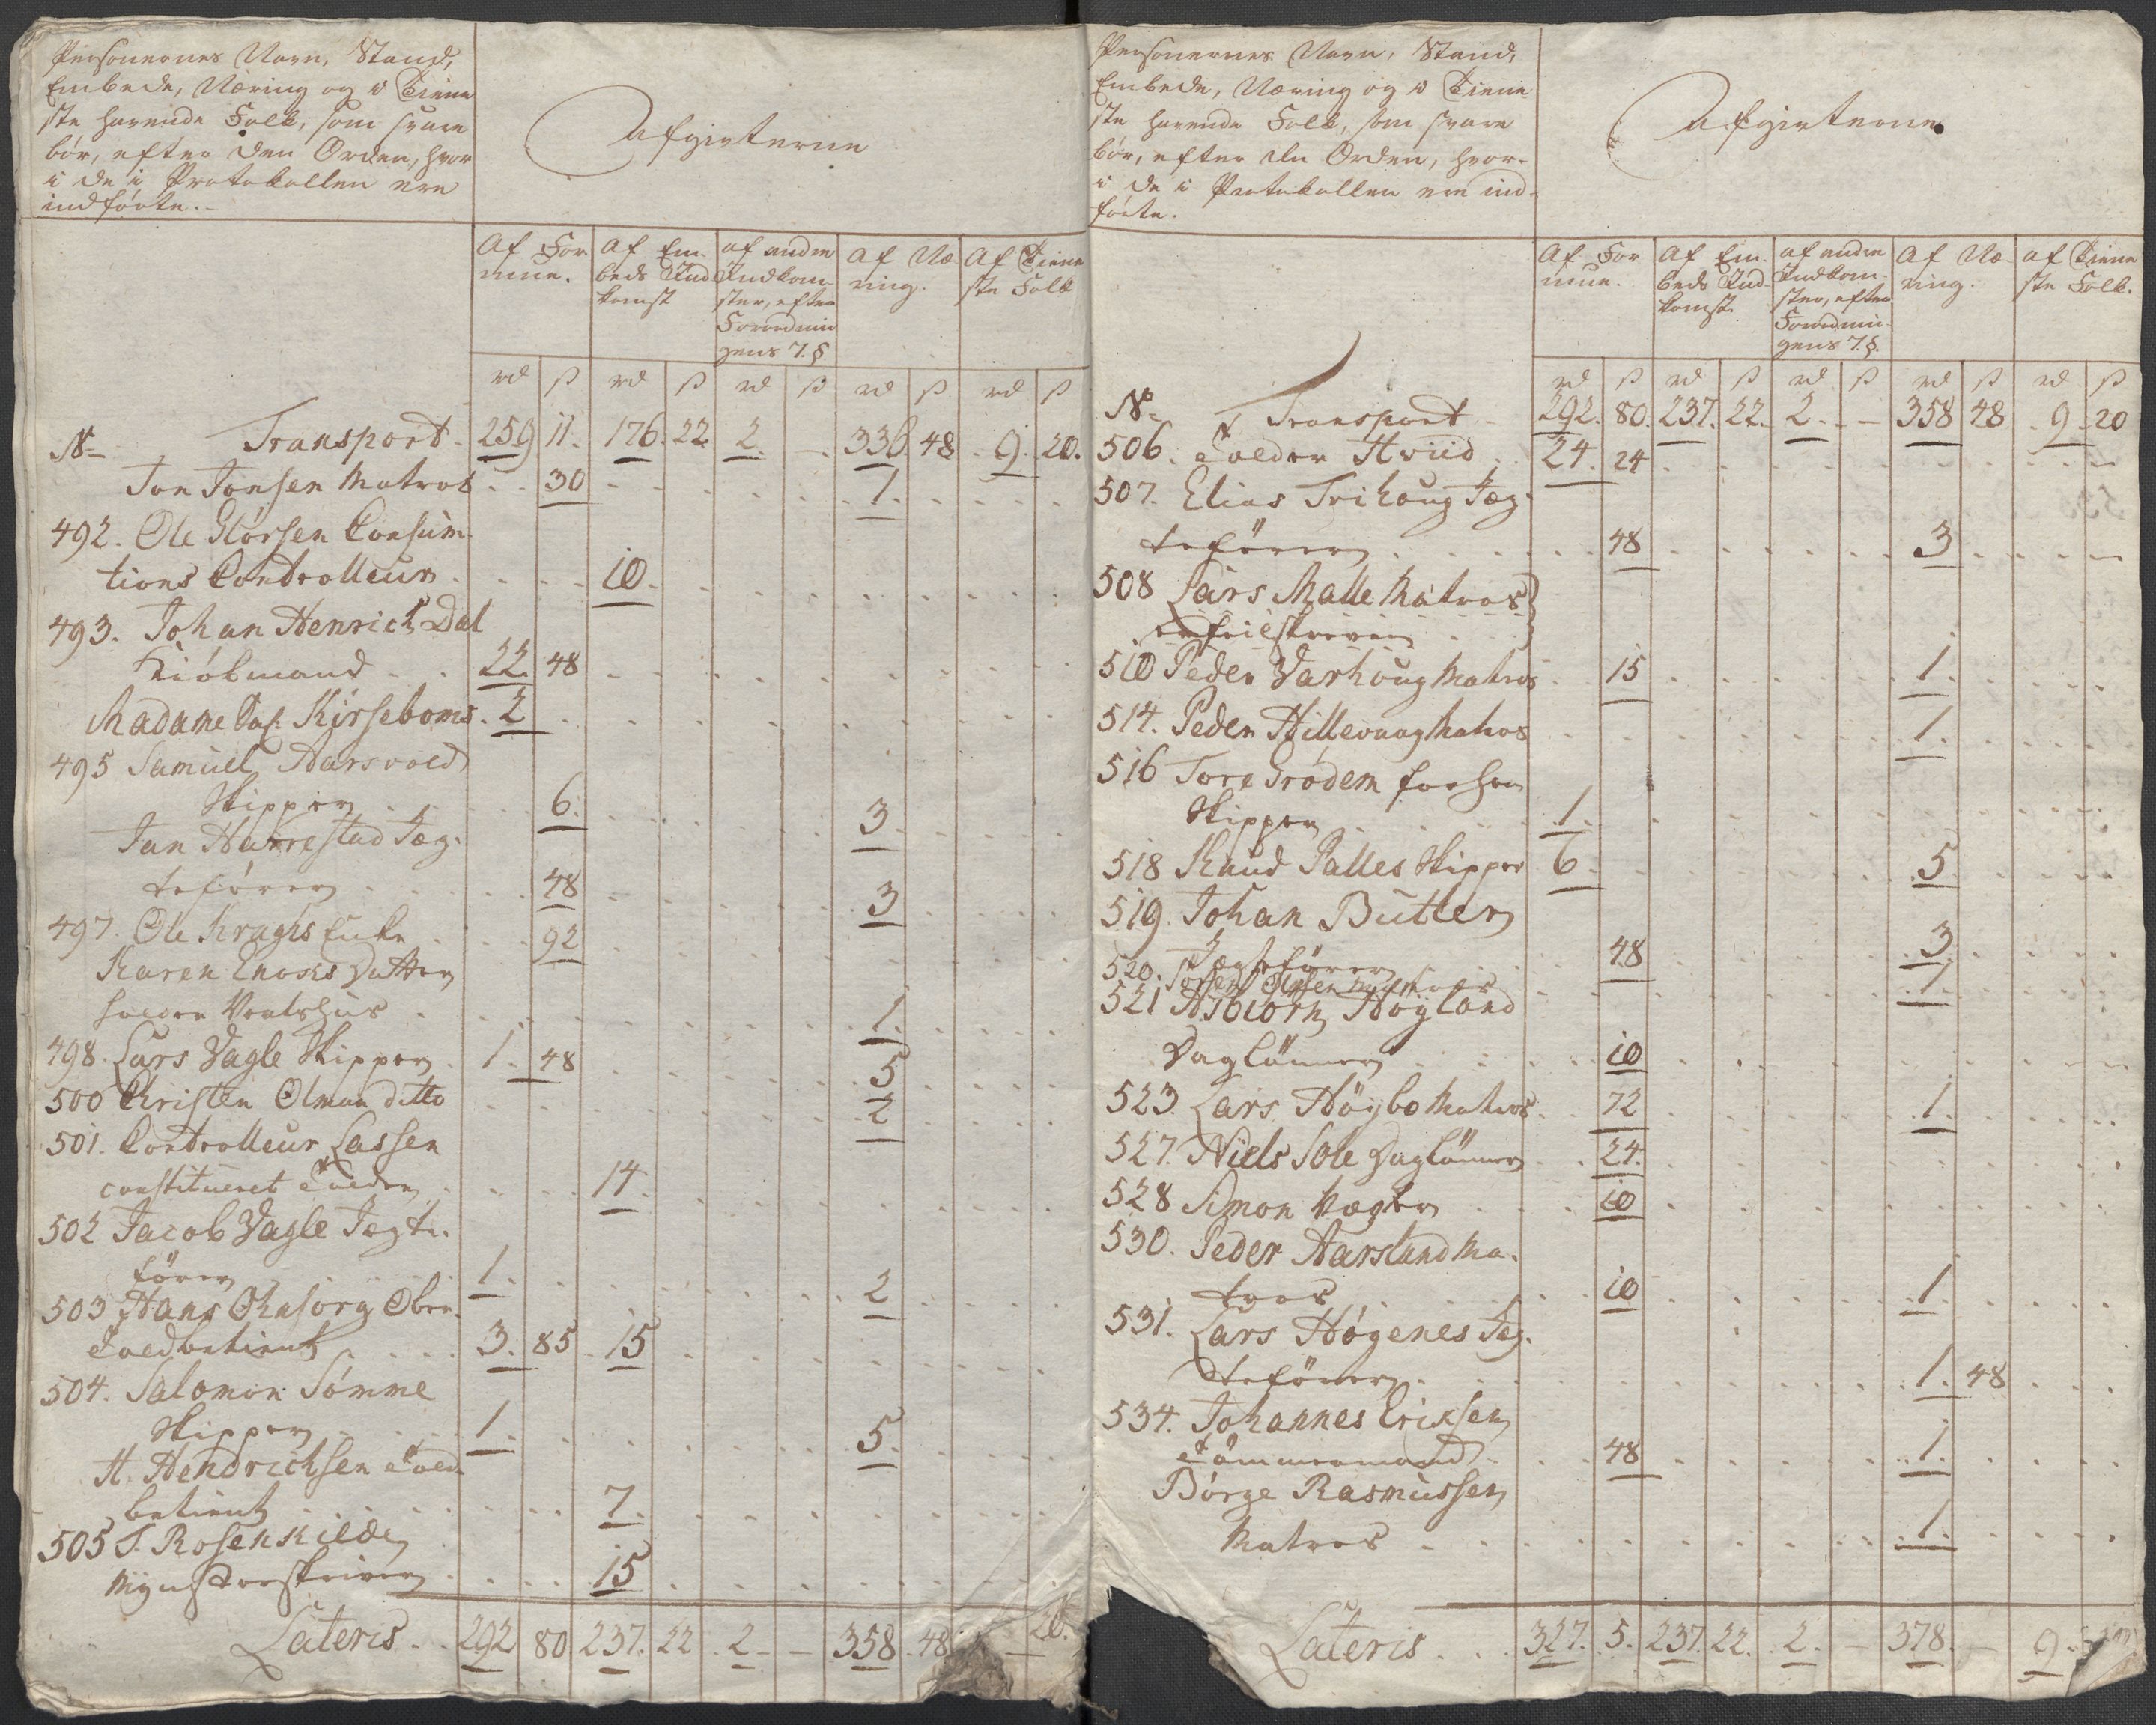 Personernes Navn, Stand,
Embede, Næring og i Tiene
ste havende Folk, som svare
bör, efter den Orden, hvor
i de i Protokollen ere
indförte.
Afgivterne
Af For
mue.
Af Em-
beds Ind
komst
af andre
Indkom-
ster, efter
Forordnin
gens 7. §
Af Næ
ring.
Af Tiene
ste Folk
rd ß rd ß rd ß rd ß rd ß
No Transport. 259 11. 176. 22. 2. - 336 48. 9. 20.
Jon Jonsen Matros 30 1.
492. Ole Glörsen Consum-
tions Controlleur 10.
493. Johan Henrich Dal
Kiöbmand 22. 48
Madame Sal. Kirseboms. 2
495 Samuel Harsvold
Skipper 6. 3
Jan Haarrestad Jæg-
teförer 48 3
497. Ole Kraghs Enke 92
Karen Enochs Datter
holder Vertshus 1.
498. Lars Vagle Skipper 1. 48 5
500 Christen Olman ditto 2
501. Controlleur Lassen
constitueret Tolder 14.
502 Jacob Vagle Jægte-
förer 1. 2
503 Hans Ohnsorg Over-
toldbetient 3. 85 15
504. Salomon Sömme
Skipper 1. 5.
H. Hendrichsen Told
betient 7.
505 T. Rosenkilde
Mynsterskriver 15
Lateris 292 80 237. 22 2. - 358 48 20.
Personernes Navn, Stand,
Embede, Næring og i Tiene-
ste havende Folk, som svare
bör, efter den Orden, hvor-
i de i Protokollen ere ind-
förte.
Afgivterne.
Af For
mue.
Af Em-
beds Ind-
komst.
af andre
Indkom-
ster, efter
Forordnin-
gens 7. §.
Af Næ-
ring.
af Tiene
ste Folk.
rd ß rd ß rd ß rd ß rd ß
No Transport 292. 80. 237. 22. 2. - 358 48 9. 20
506. Tolder Hviid 24. 24
507. Elias Trihoug Jæg-
teförer 48 3
508 Lars Malle Matros
er feilskreven
510 Peder Varhoug Matros 15 1.
514. Peder Hillevaag Matros 1.
516 Tore Grödem forhen
Skipper 1.
518 Knud Palles Skipper 6 5
519. Johan Butler
Jægteförer 48 3
520. Olsen Matros 1.
521 Asbiörn Höyland
Daglönner 10
523. Lars Höybo Matros 72 1.
527. Niels Sole Daglönner 24.
528 Simon Vægter 10
530. Peder Aarsland Ma-
tros 10 1.
531. Lars Högenes Jæg-
teförer 1. 48
534. Johannes Eriksen
Tömmermand 48 1.
Börge Rasmussen
Matros 1.
Lateris 327. 5. 237. 22. 2. - 378. - 9.